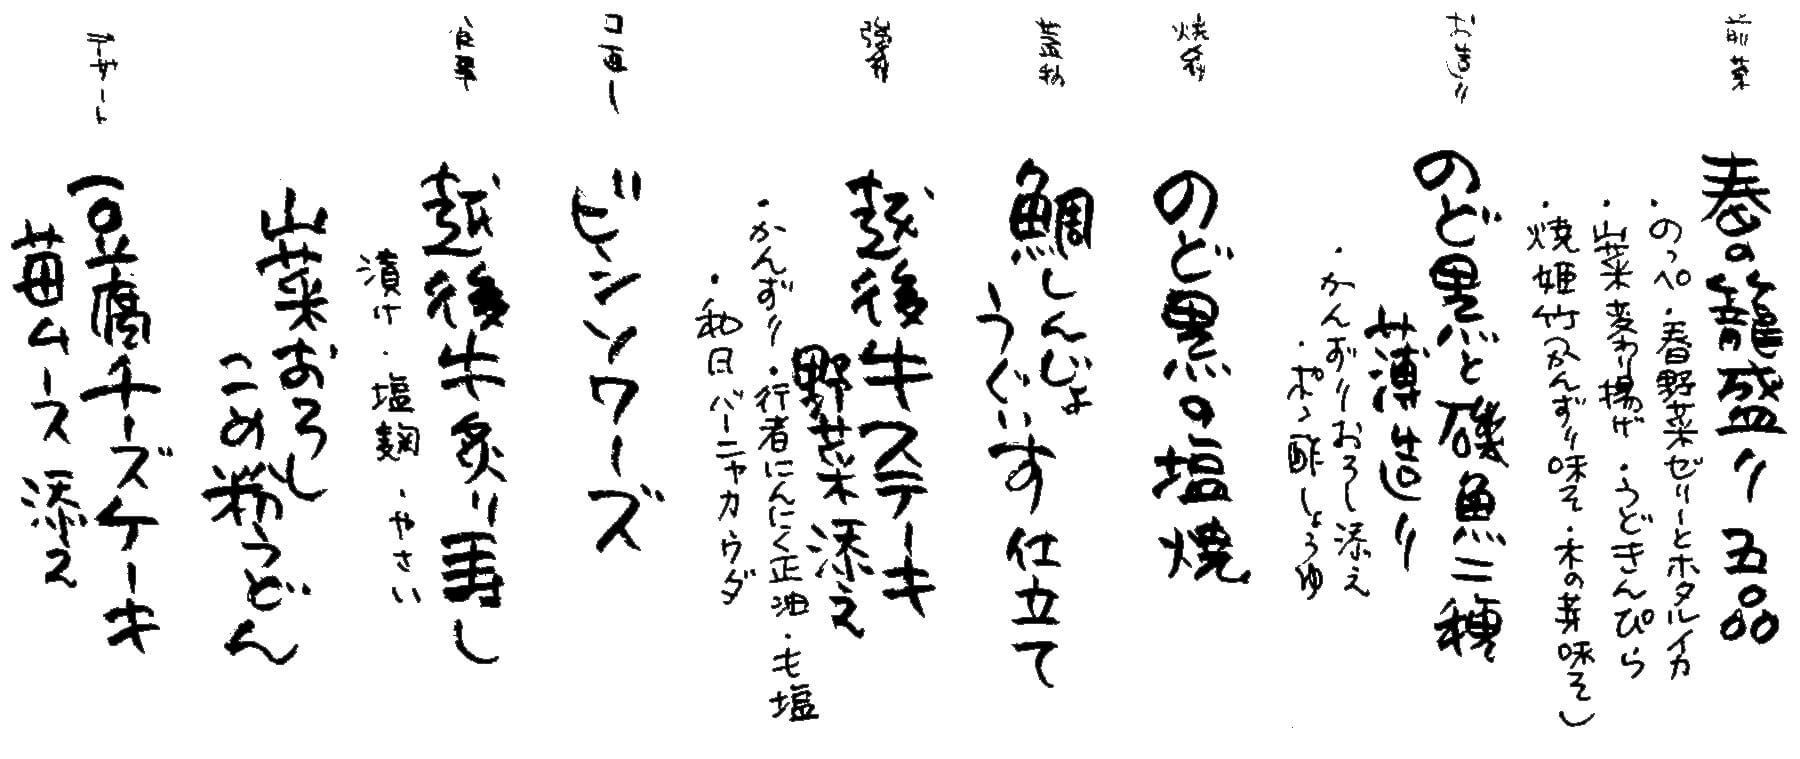 前菜
春の籠盛り 五品
・のっぺ・春野菜ゼリーとホタルイカ
・山菜変わり揚げ・うどきんぴら
・焼姫竹(かんずり味そ・木の芽味そ)
お造り
のど黒と磯魚二種
薄造り
・かんずりおろし添え
・ポン酢しょうゆ
焼物
のど黒の塩焼
蓋物
鯛しんじょ
うぐいす仕立て
強肴
越後牛ステーキ
野菜添え
・かんずり・行者にんにく正油・も塩
・和日バーニャカウダ
口直し
ビンンワーズ
食事
越後牛炙り寿し
漬け・塩麹・やさい
山菜おろし
こめ粉うどん
デザート
豆腐チーズケーキ
苺ムース添え